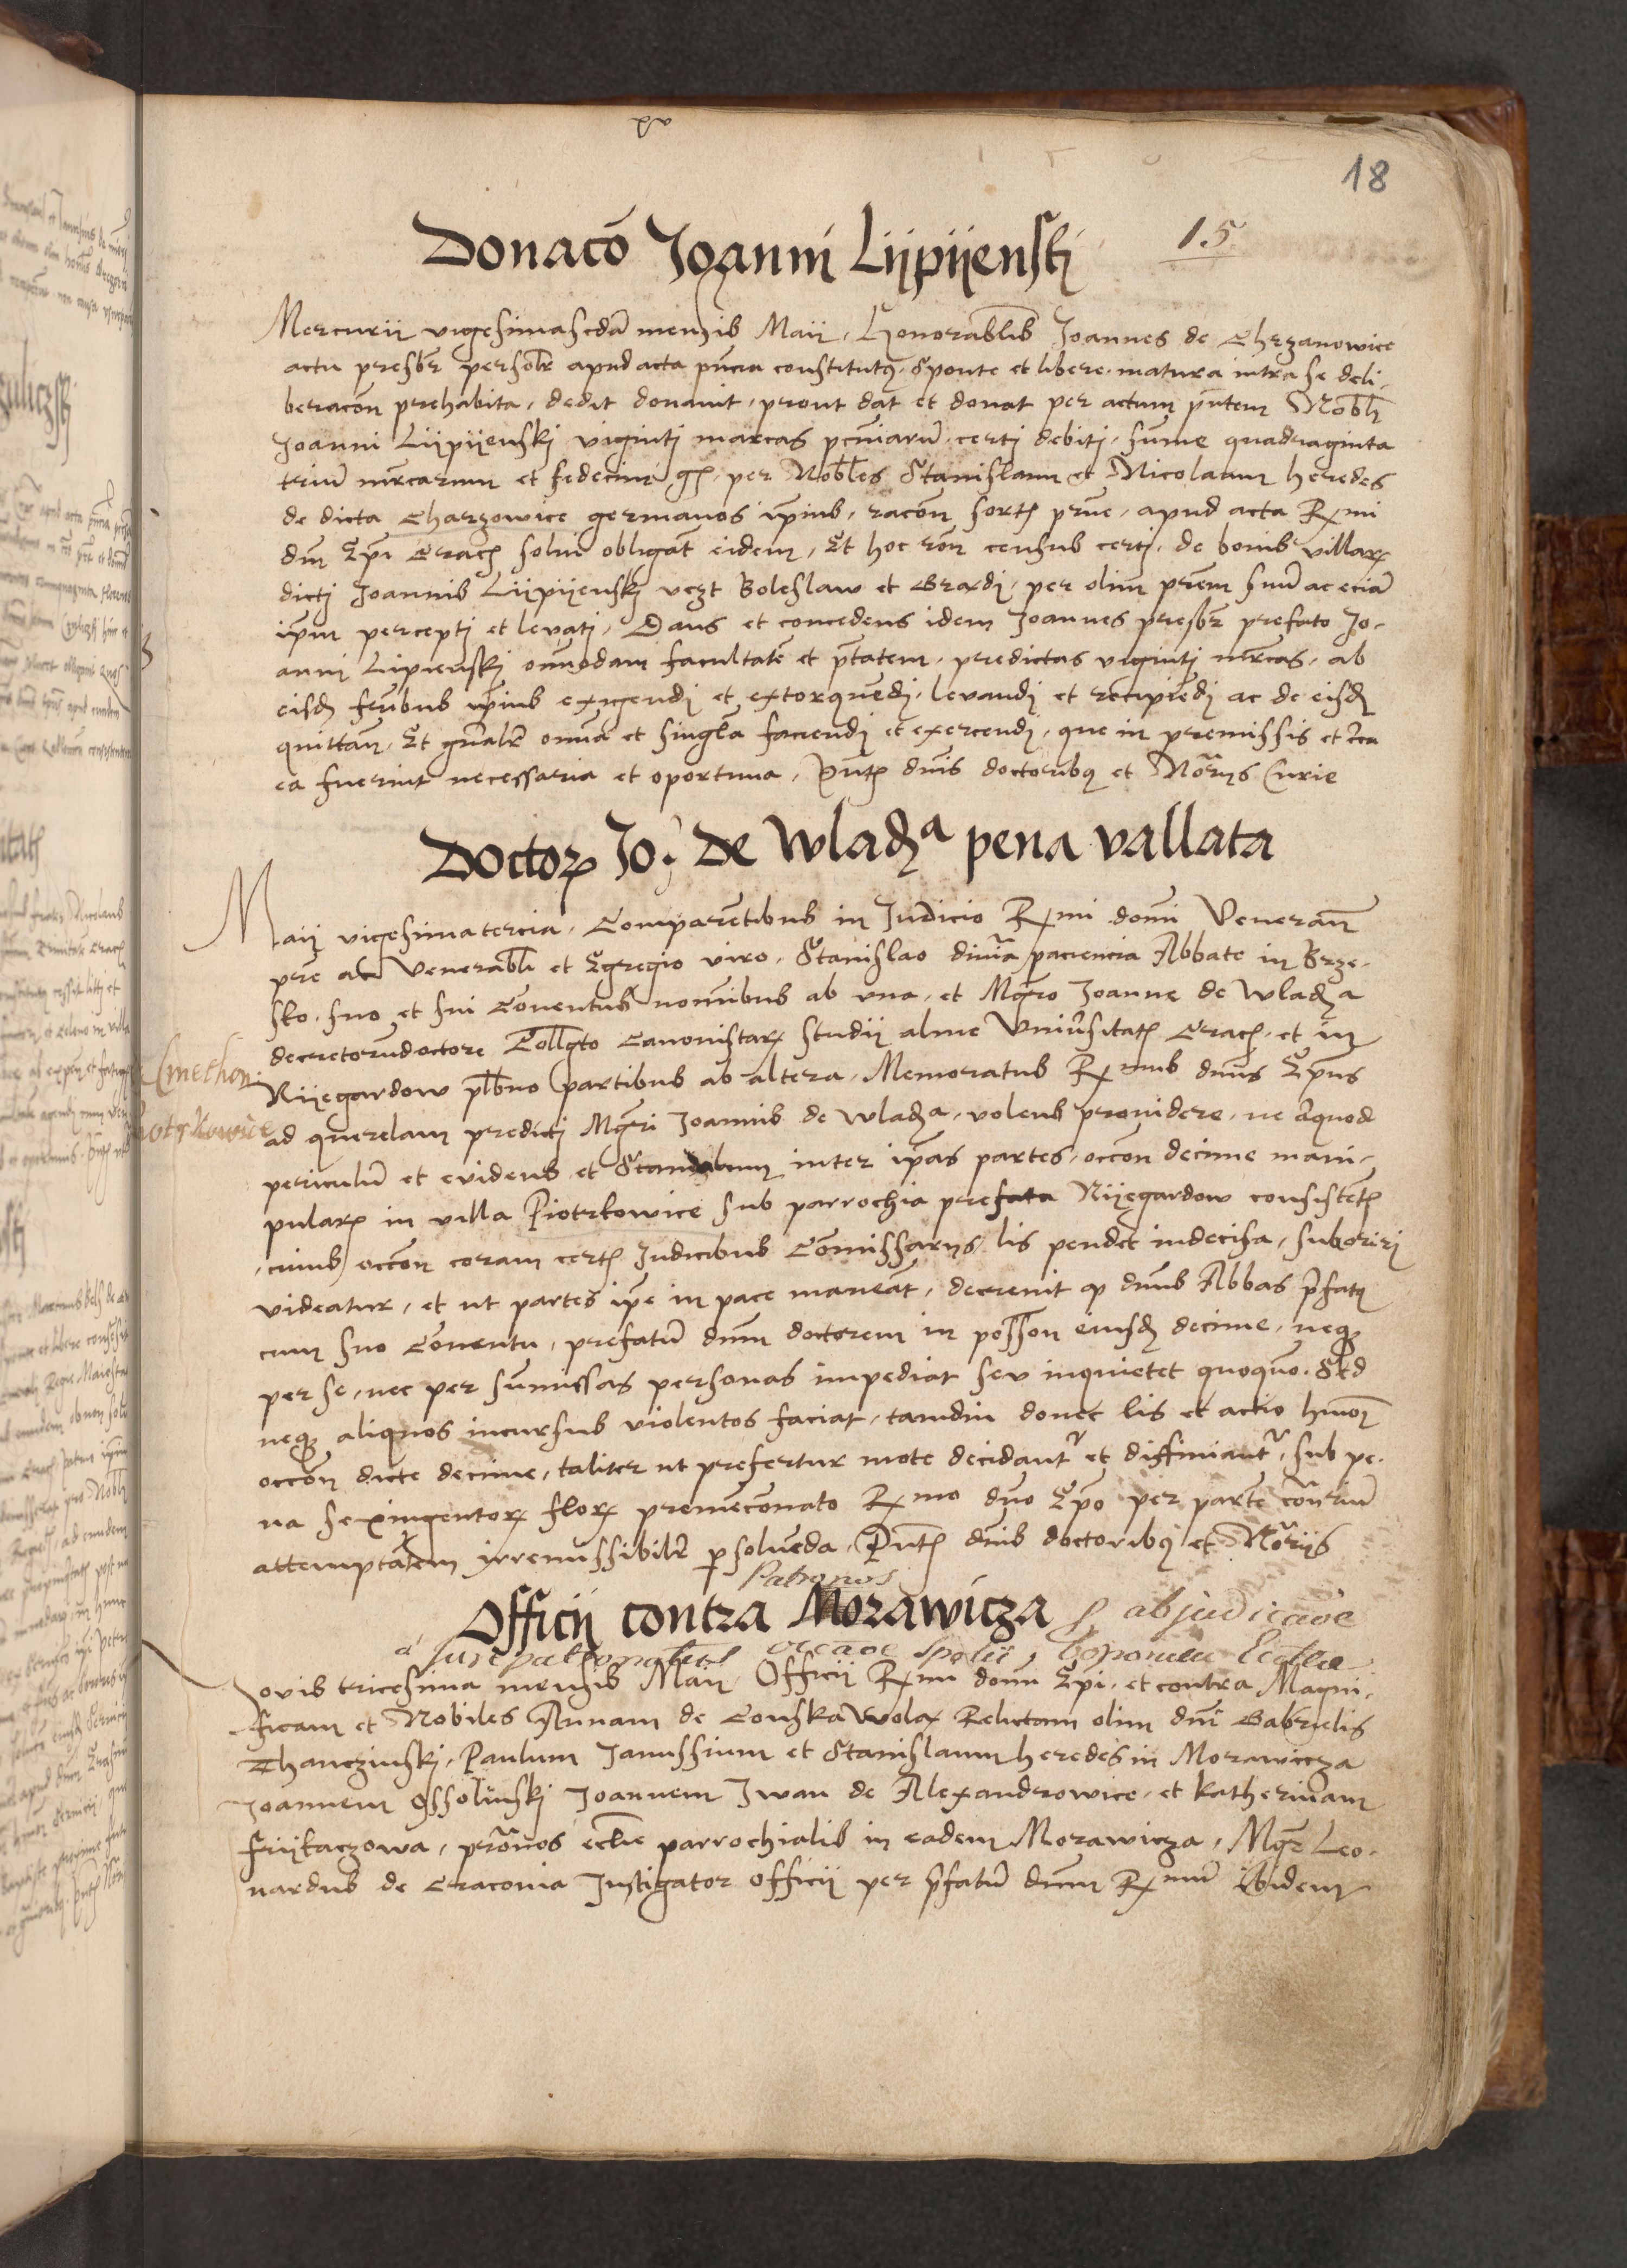 xv
18
15
Donacō Joanni Lijpijenski
Mercurij vigesimascda mensis Maij, Honorablis Joannes de Chrzanowice
actu presbr personlr apud acta pncia constitutus, sponte et libere, matura intra se deli-
beracōn prehabita, dedit donavit, prout dat et donat per actum pntem Nobli
Joanni Lijpijenskj viginti marcas pcuniarū certi debitj, sūme quadraginta
triū mrcarum et sedecim gs, per Nobles Stanislaum et Nicolaum heredes
de dicta Charzowice germanos ipius, racōn sortis prne, apud acta Rmi
dni Epi Cracs solvi obligat eidem, Et hoc rōn census certi, de bonis villarx
dictj Joannis Lijpijenskj vczt Boleslaw et Brodzi, per olim prem suū ac eciā
ipm perceptj et levatj, Dans et concedens idem Joannes presbr prefato Jo-
anni Lipienskj omnodam facultatē et ptatem, predictas viginti mrcas, ab
eisdz fribus ipius exigendj et extorquendj, levandj et recipiēdj ac de eisdz
quittan, Et gnalr omīa et singla faciendj et exercendj, que in premissis et circa
ea fuerint necessaria et oportuna, Pntz dnis doctoribus et Notrijs Curie
Doctoris Jo: de Wladza pena vallata
Maij vigesimatercia, Comparentibus in Judicio Rmi domi Veneran
pre ac Venerabli et Egregio viro, Stanislao divia paciencia Abbate in Brze-
sko, suo et sui Conventus nominibus ab una, et Mgro Joanne de Wladza
decretorumdoctore Collgto Canonistarx studij alme Universitatis Cracs, et in
Nijegardow plbno partibus ab altera, Memoratus Rmus dnus Epus
Cmethon
Piotrkowice
ad querelam predictj Mgri Joannis de Wladza, volens providere, ne aliquod
periculū et evidens et scandalum inter ipas partes, occōn decime mani-
pularis in villa Piotrkowice sub parrochia prefata Nijegardow consistetis
cuius occōn coram certis Judicibus Comissarijs, lis pendet indecisa, suboririj
videatur, et ut partes ipe in pace maneāt, decrevit q dnus Abbas pfatus
cum suo Conventu, prefatū dnm doctorem in possōn eiusdz decime, neqz
per se, nec per sūmissas personas impediat seu inquietet quoquo, Sed
neqz aliquos incursus violentos faciat, tamdiu donec lis et actio hmōi
occōn dicte decime, taliter ut prefertur mote decidantr et diffiniantr, sub pe-
na sexingentorx florx premēconato Rmo dno Epo per partē cōtriū
attemptatem irremissibilr psolvēda, Pntz dnis doctoribus et Notrijs
Patronos
Officij contra Morawicza p abjudicaōe
a Jure patronatus ocaōe spolii bonorum Ecclīe
Jovis tricesima mensis Maij Officij Rmi domi Epi, et contra Magni-
ficam et Nobiles Annam de Conska Wola Relictam olim dni Gabrielis
Thanczinskj, Paulum Janussium et Stanislaum heredes in Morawicza
Joannem Ossolinskj Joannem Iwan de Alexandrowice, et Katherinam
frijkaczowa, prōnos ecclie parrochialis in eadem Morawicza, Mgr Leo-
nardus de Cracovia Instigator officij per pfatū dnm Rmū ibidem